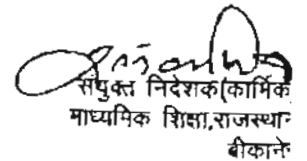 संयुक्त निदेशक(कार्मिक
माध्यमिक शिक्षा,राजस्था
बीकाने